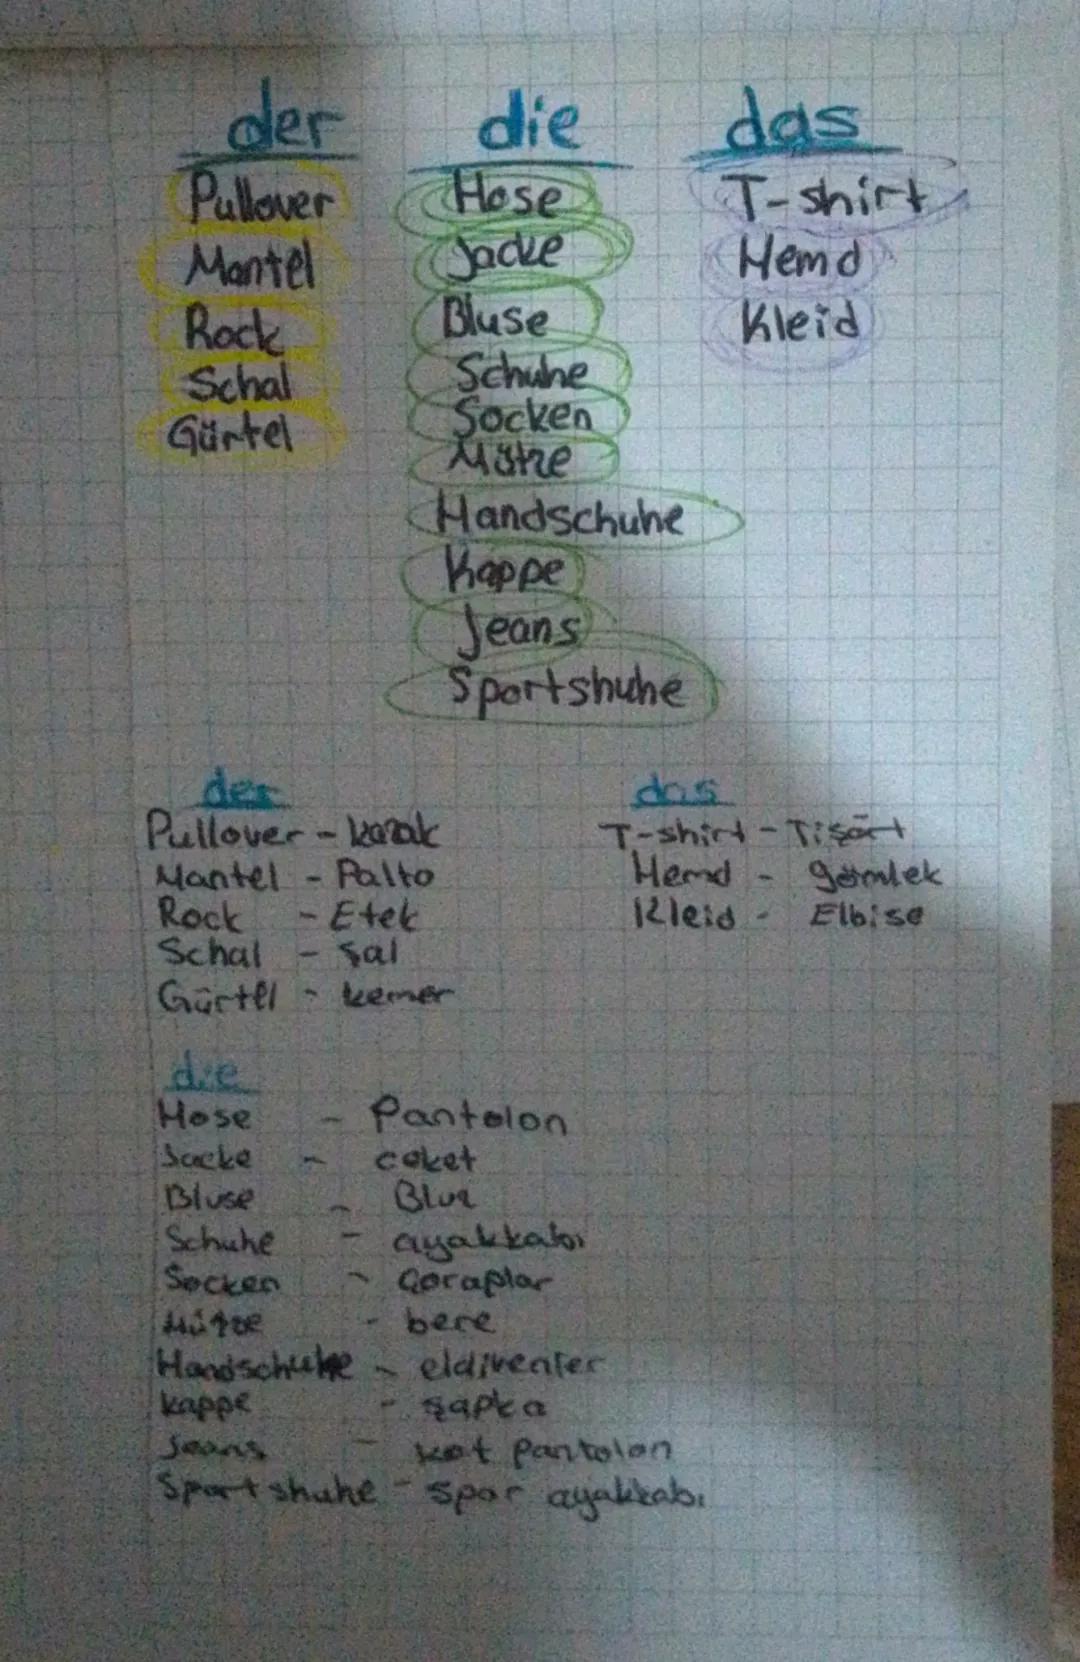 der die das
Pullover Hose T-shirt
Mantel Jacke Hemd
Rock Bluse Kleid
Schal Schuhe
Gürtel Socken
Mütze
Handschuhe
Kappe
Jeans
Sportshuhe
der das
Pullover - kazak T-shirt - Tişört
Mantel - Palto Hemd - gömlek
Rock - Etek Kleid - Elbise
Schal - Şal
Gürtel - kemer
die
Hose - Pantolon
Jacke - ceket
Bluse - Bluz
Schuhe - ayakkabı
Socken - Çoraplar
Mütze - bere
Handschuhe - eldivenler
kappe - şapka
Jeans - kot pantolon
Sportshuhe - spor ayakkabı